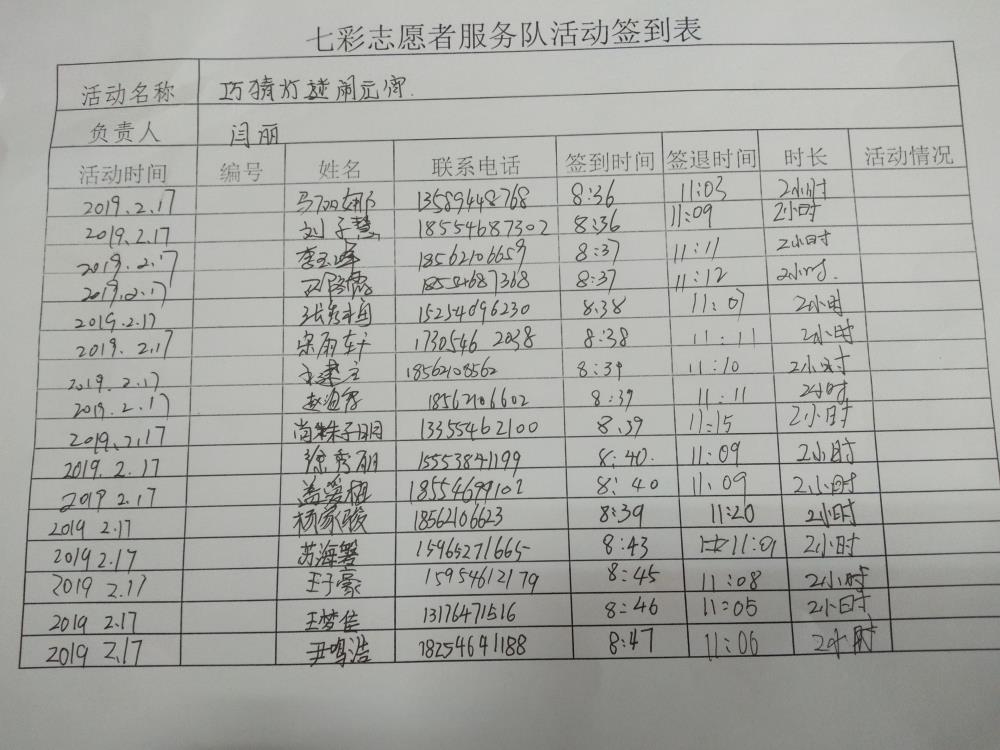 七彩志愿者服务队活动签到表
活动名称 巧猜灯谜闹元宵.
负责人 闫丽
活动时间 编号 姓名 联系电话 签到时间 签退时间 时长 活动情况
2019.2.17 13589448768 8:36 11:03 2小时
2019.2.17 刘子慧 18554687302 8:36 11:09 2小时
2019.2.17 李玉峰 18562106659 8:37 11:11 2小时
2019.2.17 18554687368 8:37 11:12 2小时.
2019.2.17 15254096230 8:38 11:07 2小时
2019.2.17 宋雨轩 1730546 2038 8:38 11:11 2小时
2019.2.17 18562108562 8:39 11:10 2小时
2019.2.17 18562106602 8:39 11:11 2小时
2019.2.17 尚姝子玥 13355462100 8:39 11:15 2小时
2019.2.17 徐秀丽 15553841199 8:40. 11:09 2小时
2019 2.17 18554699102 8:40 11:09 2小时
2019 2.17 杨家骏 18562106623 8:39 11:20 2小时
2019 2.17 苏海馨 15965271665 8:43 11:01 2小时
2019 2.17 王子豪 15954612179 8:45 11:08 2小时
2019 2.17 王梦佳 13176471516 8:46 11:05 2小时
2019 2.17 尹鸣浩 18254641188 8:47 11:06 2小时